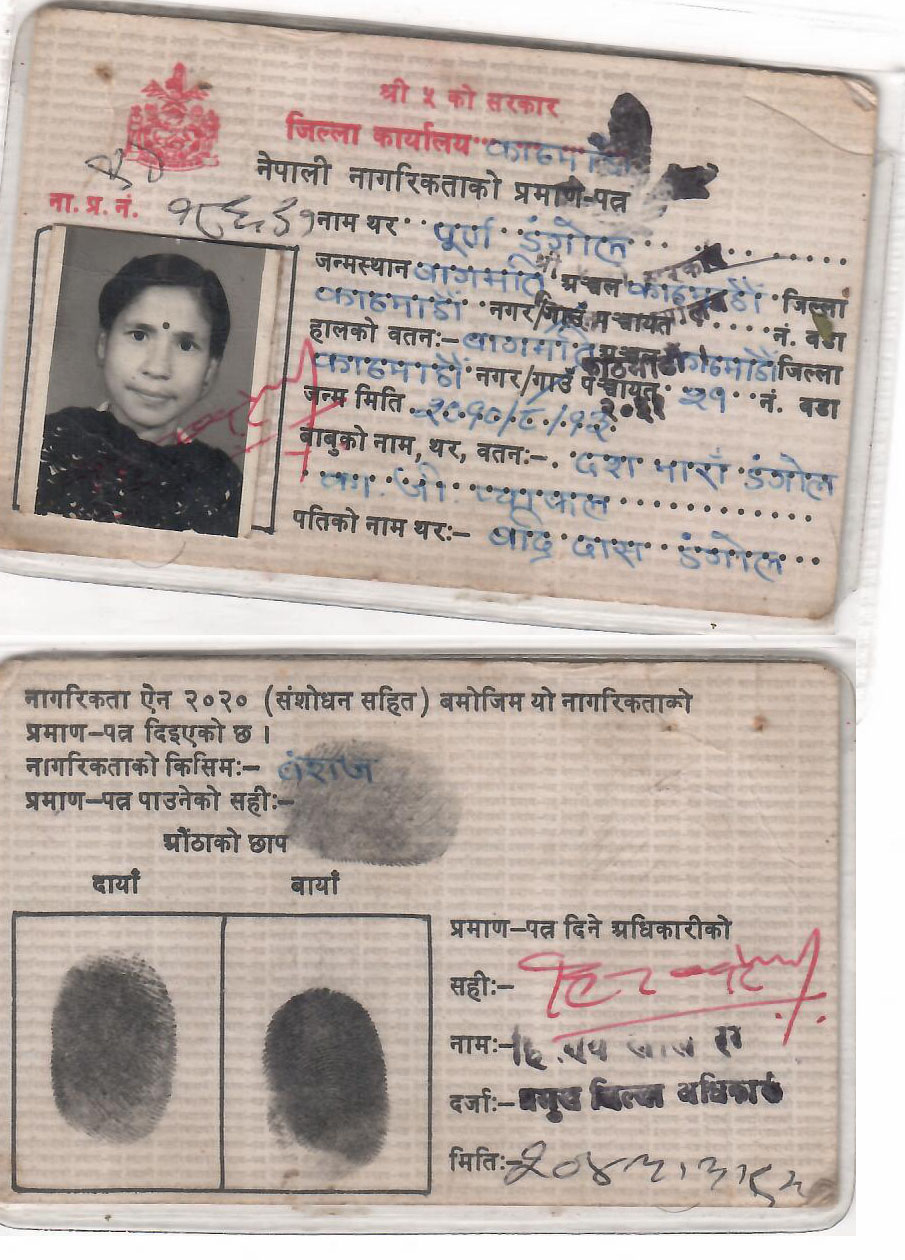 श्री ५ को सरकार
जिल्ला कार्यालय काठमाडौं
नेपाली नागरिकताको प्रमाण-पत्र
ना. प्र. नं.
नाम थर पूर्ण डंगोल
जन्मस्थान बागमति अञ्चल काठमाडौं जिल्ला
काठमाडौं नगर/गाउँ पञ्चायत नं. वडा
हालको वतन:- बागमति अञ्चल काठमाडौं जिल्ला
काठमाडौं नगर/गाउँ पञ्चायत २१ नं. वडा
जन्म मिति २०१०/८/१३
बाबुको नाम, थर, वतन:- दश मारां डंगोल
पतिको नाम थर:- बद्रि दास डंगोल
नागरिकता ऐन २०२० (संशोधन सहित) बमोजिम यो नागरिकताको
प्रमाण-पत्र दिइएको छ ।
नागरिकताको किसिम:- वंशज
प्रमाण-पत्र पाउनेको सही:-
औंठाको छाप
दायाँ बायाँ
प्रमाण-पत्र दिने अधिकारीको
सही:-
नाम:-
दर्जा:- प्रमुख जिल्ला अधिकारी
मिति:-